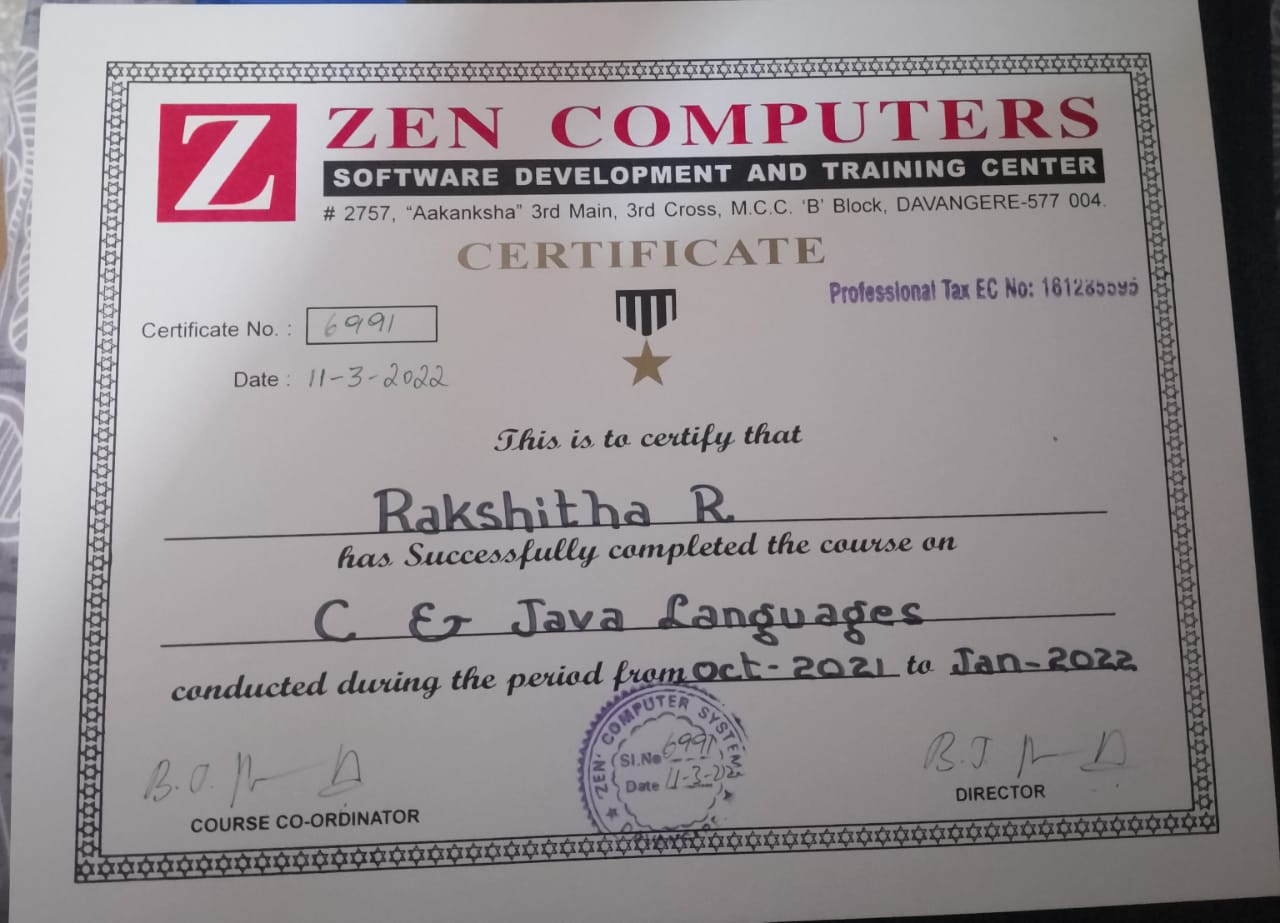 Z ZEN COMPUTERS
SOFTWARE DEVELOPMENT AND TRAINING CENTER
# 2757, “Aakanksha” 3rd Main, 3rd Cross, M.C.C. ‘B’ Block, DAVANGERE-577 004.
CERTIFICATE
Professional Tax EC No: 161285595
Certificate No. : 6991
Date : 11-3-2022
This is to certify that
Rakshitha R
has Successfully completed the course on
C & Java Languages
conducted during the period from Oct-2021 to Jan-2022
ZEN COMPUTER SYSTEMS
Sl.No 6991
Date 11-3-202
COURSE CO-ORDINATOR
DIRECTOR